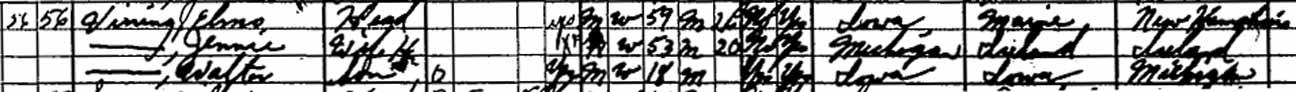 56 56 Vining, Elmo Head M W 59 M 26 No Yes Iowa Maine New Hampshire
——, Jennie Wife H W 53 M 20 No Yes Michigan Ireland Ireland
——, Walter Son O Yes M W 18 M Yes Iowa Iowa Michigan